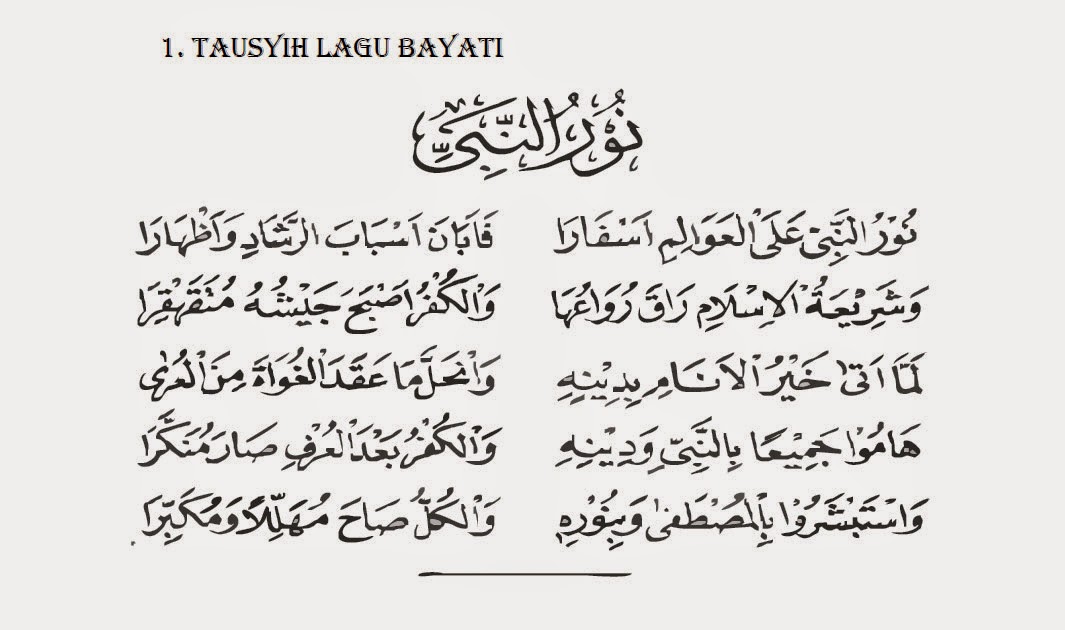 1. TAUSYIH LAGU BAYATI
نُوْرُ النَّبِيِّ
نُوْرُ النَّبِيِّ عَلَى الْعَوَالِمِ اَسْفَارَا فَابَانَ اَسْبَابَ الرَّشَادِ وَاَظْهَارَا
وَشَرِيْعَةُ الْاِسْلَامِ رَاقَ رُوَاعُهَا وَالْكُفْرُ اَصْبَحَ جَيْشُهُ مُتَقَهْقِرَا
لَمَّا اَتٰى خَيْرُ الْاَنَامِ بِدِيْنِهِ وَانْحَلَّ مَا عَقَدَ الْغُوَاةَ مِنَ الْعُرٰى
هَامُوْا جَمِيْعًا بِالنَّبِيِّ وَدِيْنِهِ وَالْكُفْرُ بَعْدَ الْعُرْفِ صَارَ مُنَكَّرَا
وَاسْتَبْشَرُوْا بِالْمُصْطَفٰى وَبِنُوْرِهِ وَالْكُلُّ صَاحَ مُهَلِّلًا وَمُكَبِّرَا